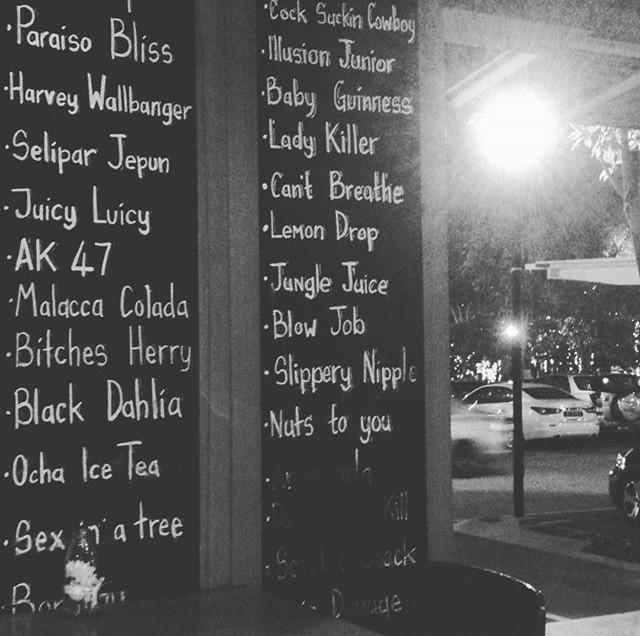 · Paraiso Bliss
· Harvey Wallbanger
· Selipar Jepun
· Juicy Luicy
· AK 47
· Malacca Colada
· Bitches Herry
· Black Dahlia
· Ocha Ice Tea
· Sex in a tree
· Cock Suckin Cowboy
· Illusion Junior
· Baby Guinness
· Lady Killer
· Can't Breathe
· Lemon Drop
· Jungle Juice
· Blow Job
· Slippery Nipple
· Nuts to you
Kill
Damage